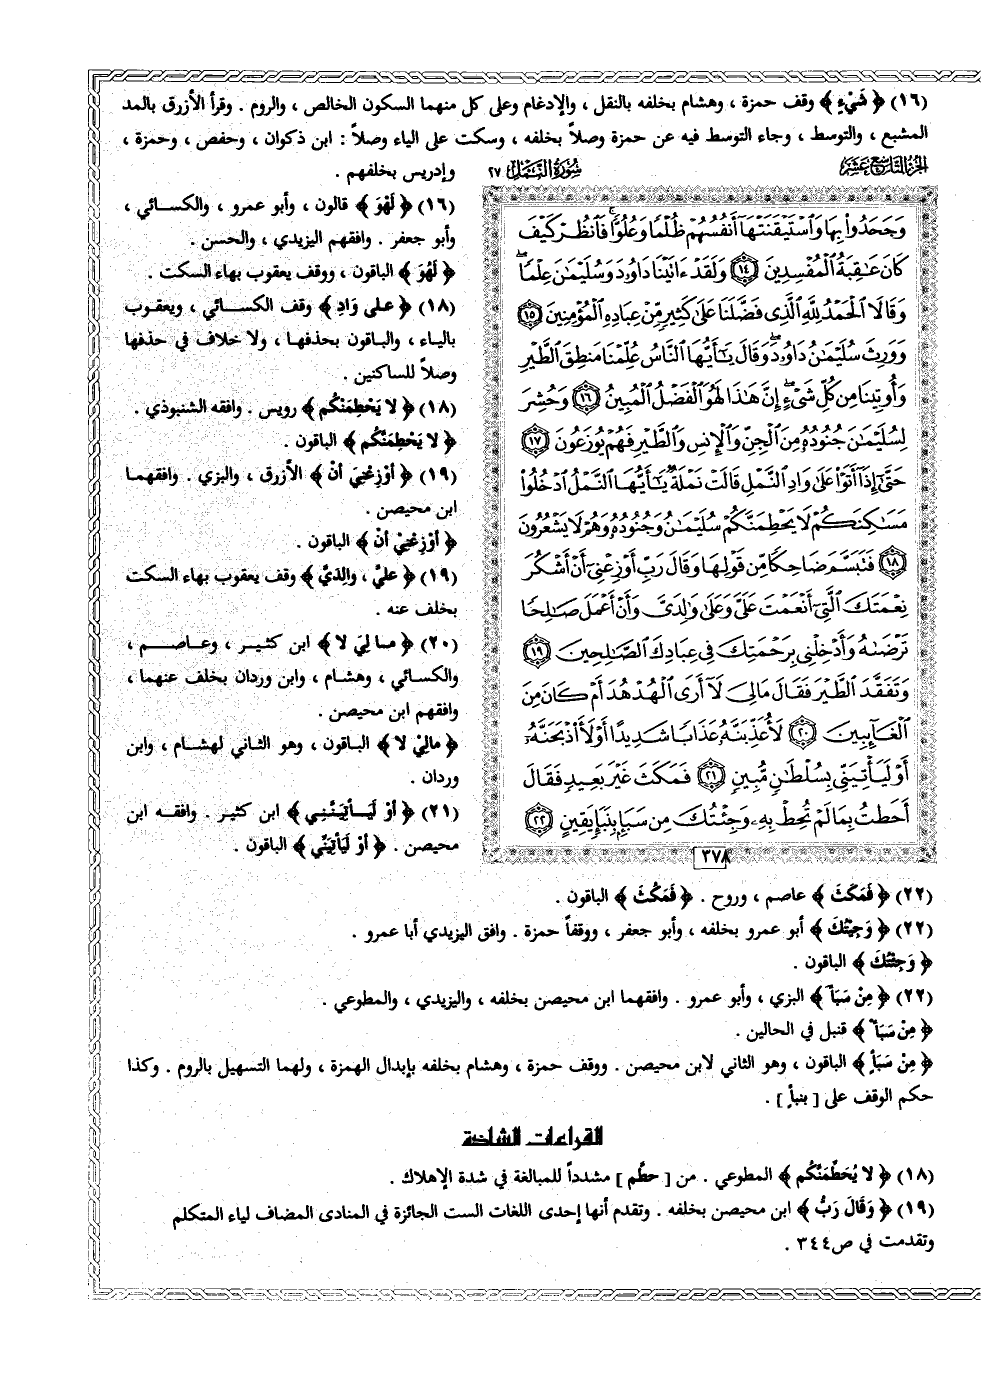 (١٦) ﴿ شَيْءٍ ﴾ وقف حمزة ، وهشام بخلفه بالنقل ، والإدغام وعلى كل منهما السكون الخالص ، والروم . وقرأ الأزرق بالمد
المشبع ، والتوسط ، وجاء التوسط فيه عن حمزة وصلاً بخلفه ، وسكت على الياء وصلاً : ابن ذكوان ، وحفص ، وحمزة ،
وإدريس بخلفهم .
(١٦) ﴿ لَهْوَ ﴾ قالون ، وأبو عمرو ، والكسائي ،
وأبو جعفر . وافقهم اليزيدي ، والحسن .
﴿ لَهُوَ ﴾ الباقون ، ووقف يعقوب بهاء السكت .
(١٨) ﴿ على وَادِ ﴾ وقف الكسائي ، ويعقوب
بالياء ، والباقون بحذفها ، ولا خلاف في حذفها
وصلاً للساكنين .
(١٨) ﴿ لا يَحْطِمَنْكُم ﴾ رويس . وافقه الشنبوذي .
﴿ لا يَحْطِمَنَّكُم ﴾ الباقون .
(١٩) ﴿ أَوْزِعْنِيَ أَنْ ﴾ الأزرق ، والبزي . وافقهما
ابن محيصن .
﴿ أَوْزِعْنِيْ أَنْ ﴾ الباقون .
(١٩) ﴿ عليَّ ، والِدَيَّ ﴾ وقف يعقوب بهاء السكت
بخلف عنه .
(٢٠) ﴿ مالِيَ لا ﴾ ابن كثير ، وعاصم ،
والكسائي ، وهشام ، وابن وردان بخلف عنهما ،
وافقهم ابن محيصن .
﴿ مالِيْ لا ﴾ الباقون ، وهو الثاني لهشام ، وابن
وردان .
(٢١) ﴿ أَوْ لَيَأْتِيَنَّنِي ﴾ ابن كثير . وافقه ابن
محيصن . ﴿ أَوْ لَيَأْتِيَنِّي ﴾ الباقون .
الجزء التاسع عشر
سورة النمل ٢٧
وَجَحَدُوا۟ بِهَا وَٱسْتَيْقَنَتْهَآ أَنفُسُهُمْ ظُلْمًا وَعُلُوًّا ۚ فَٱنظُرْ كَيْفَ
كَانَ عَـٰقِبَةُ ٱلْمُفْسِدِينَ ١٤ وَلَقَدْ ءَاتَيْنَا دَاوُۥدَ وَسُلَيْمَـٰنَ عِلْمًا ۖ
وَقَالَا ٱلْحَمْدُ لِلَّهِ ٱلَّذِى فَضَّلَنَا عَلَىٰ كَثِيرٍ مِّنْ عِبَادِهِ ٱلْمُؤْمِنِينَ ١٥
وَوَرِثَ سُلَيْمَـٰنُ دَاوُۥدَ ۖ وَقَالَ يَـٰٓأَيُّهَا ٱلنَّاسُ عُلِّمْنَا مَنطِقَ ٱلطَّيْرِ
وَأُوتِينَا مِن كُلِّ شَىْءٍ ۖ إِنَّ هَـٰذَا لَهُوَ ٱلْفَضْلُ ٱلْمُبِينُ ١٦ وَحُشِرَ
لِسُلَيْمَـٰنَ جُنُودُهُۥ مِنَ ٱلْجِنِّ وَٱلْإِنسِ وَٱلطَّيْرِ فَهُمْ يُوزَعُونَ ١٧
حَتَّىٰٓ إِذَآ أَتَوْا۟ عَلَىٰ وَادِ ٱلنَّمْلِ قَالَتْ نَمْلَةٌ يَـٰٓأَيُّهَا ٱلنَّمْلُ ٱدْخُلُوا۟
مَسَـٰكِنَكُمْ لَا يَحْطِمَنَّكُمْ سُلَيْمَـٰنُ وَجُنُودُهُۥ وَهُمْ لَا يَشْعُرُونَ
١٨ فَتَبَسَّمَ ضَاحِكًا مِّن قَوْلِهَا وَقَالَ رَبِّ أَوْزِعْنِىٓ أَنْ أَشْكُرَ
نِعْمَتَكَ ٱلَّتِىٓ أَنْعَمْتَ عَلَىَّ وَعَلَىٰ وَٰلِدَىَّ وَأَنْ أَعْمَلَ صَـٰلِحًا
تَرْضَىٰهُ وَأَدْخِلْنِى بِرَحْمَتِكَ فِى عِبَادِكَ ٱلصَّـٰلِحِينَ ١٩
وَتَفَقَّدَ ٱلطَّيْرَ فَقَالَ مَالِىَ لَآ أَرَى ٱلْهُدْهُدَ أَمْ كَانَ مِنَ
ٱلْغَآئِبِينَ ٢٠ لَأُعَذِّبَنَّهُۥ عَذَابًا شَدِيدًا أَوْ لَأَا۟ذْبَحَنَّهُۥٓ
أَوْ لَيَأْتِيَنِّى بِسُلْطَـٰنٍ مُّبِينٍ ٢١ فَمَكَثَ غَيْرَ بَعِيدٍ فَقَالَ
أَحَطتُ بِمَا لَمْ تُحِطْ بِهِۦ وَجِئْتُكَ مِن سَبَإٍۭ بِنَبَإٍ يَقِينٍ ٢٢
٣٧٨
(٢٢) ﴿ فَمَكَثَ ﴾ عاصم ، وروح . ﴿ فَمَكُثَ ﴾ الباقون .
(٢٢) ﴿ وَجِيْتُكَ ﴾ أبو عمرو بخلفه ، وأبو جعفر ، ووقفاً حمزة . وافق اليزيدي أبا عمرو .
﴿ وَجِئْتُكَ ﴾ الباقون .
(٢٢) ﴿ مِنْ سَبَأَ ﴾ البزي ، وأبو عمرو . وافقهما ابن محيصن بخلفه ، واليزيدي ، والمطوعي .
﴿ مِنْ سَبَأْ ﴾ قنبل في الحالين .
﴿ مِنْ سَبَأٍ ﴾ الباقون ، وهو الثاني لابن محيصن . ووقف حمزة ، وهشام بخلفه بإبدال الهمزة ، ولهما التسهيل بالروم . وكذا
حكم الوقف على [ بنبأٍ ] .
القراءات الشاذة
(١٨) ﴿ لا يُحَطِّمَنَّكُم ﴾ المطوعي . من [ حطَّم ] مشدداً للمبالغة في شدة الإهلاك .
(١٩) ﴿ وَقَالَ رَبُّ ﴾ ابن محيصن بخلفه . وتقدم أنها إحدى اللغات الست الجائزة في المنادى المضاف لياء المتكلم
وتقدمت في ص٣٤٤ .